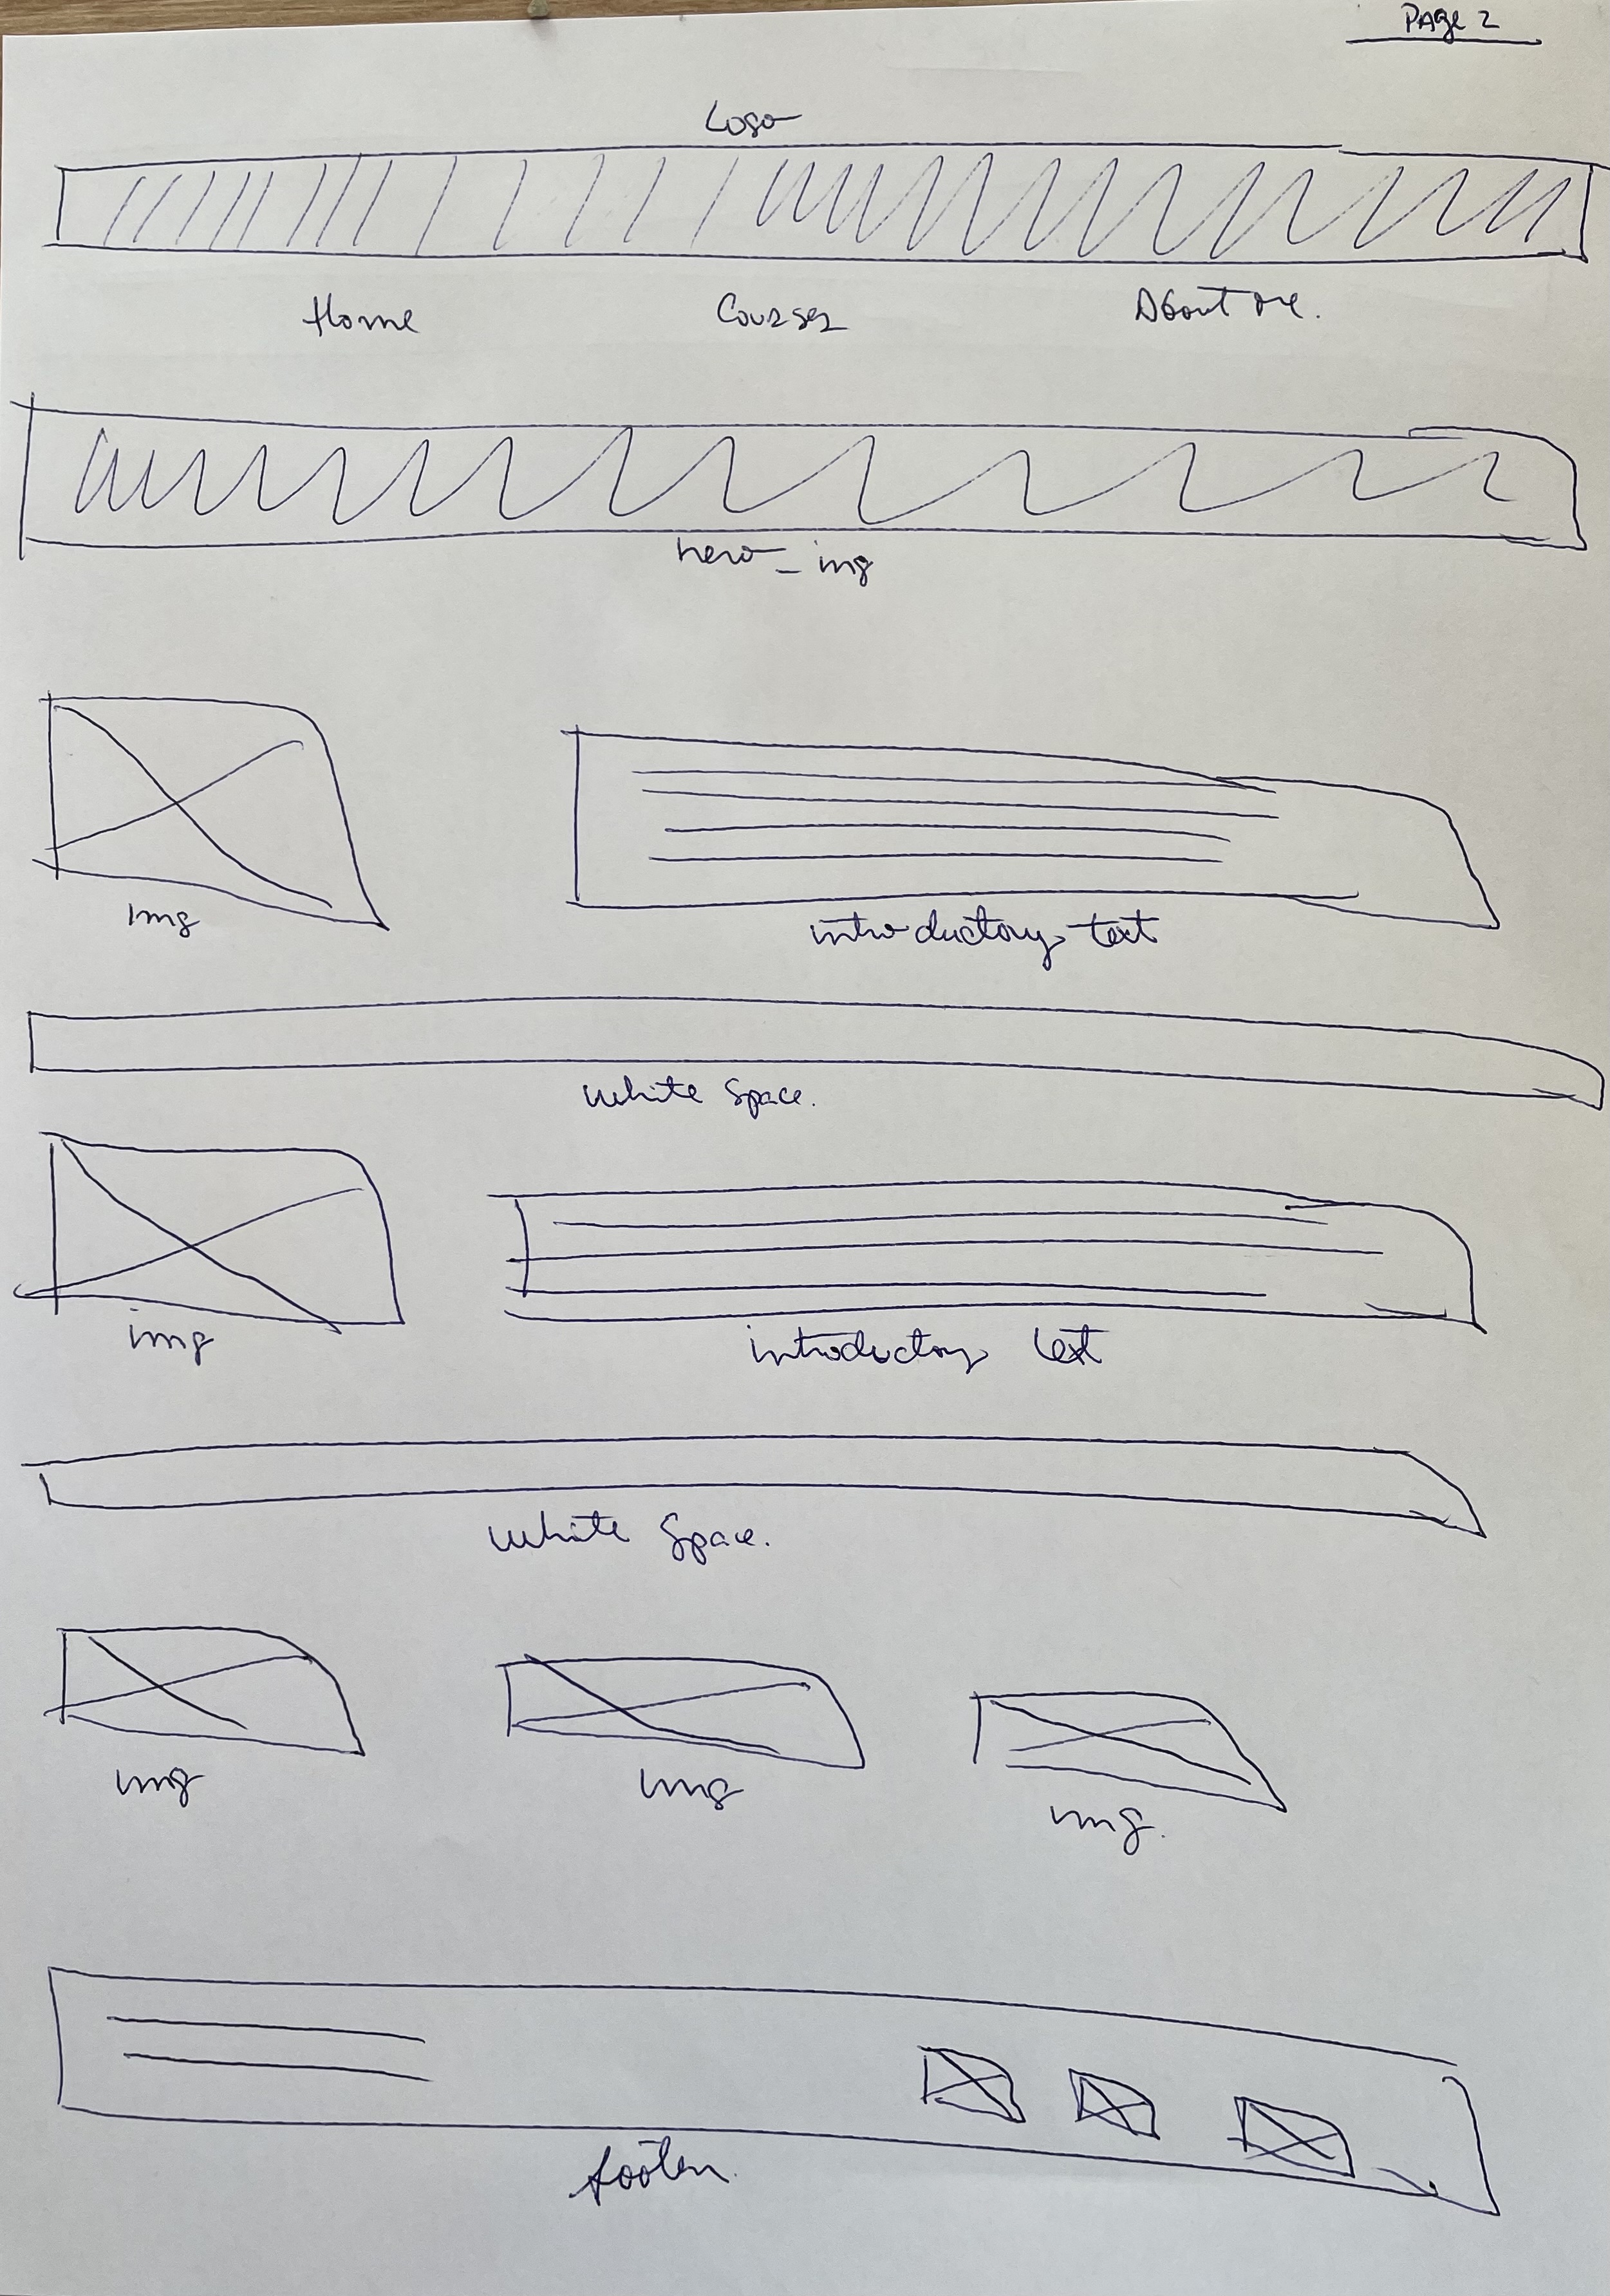 Page 2
Logo
Home Courses About me.
hero_img
img introductory text
white space.
img introductory text
white space.
img img img.
footer.